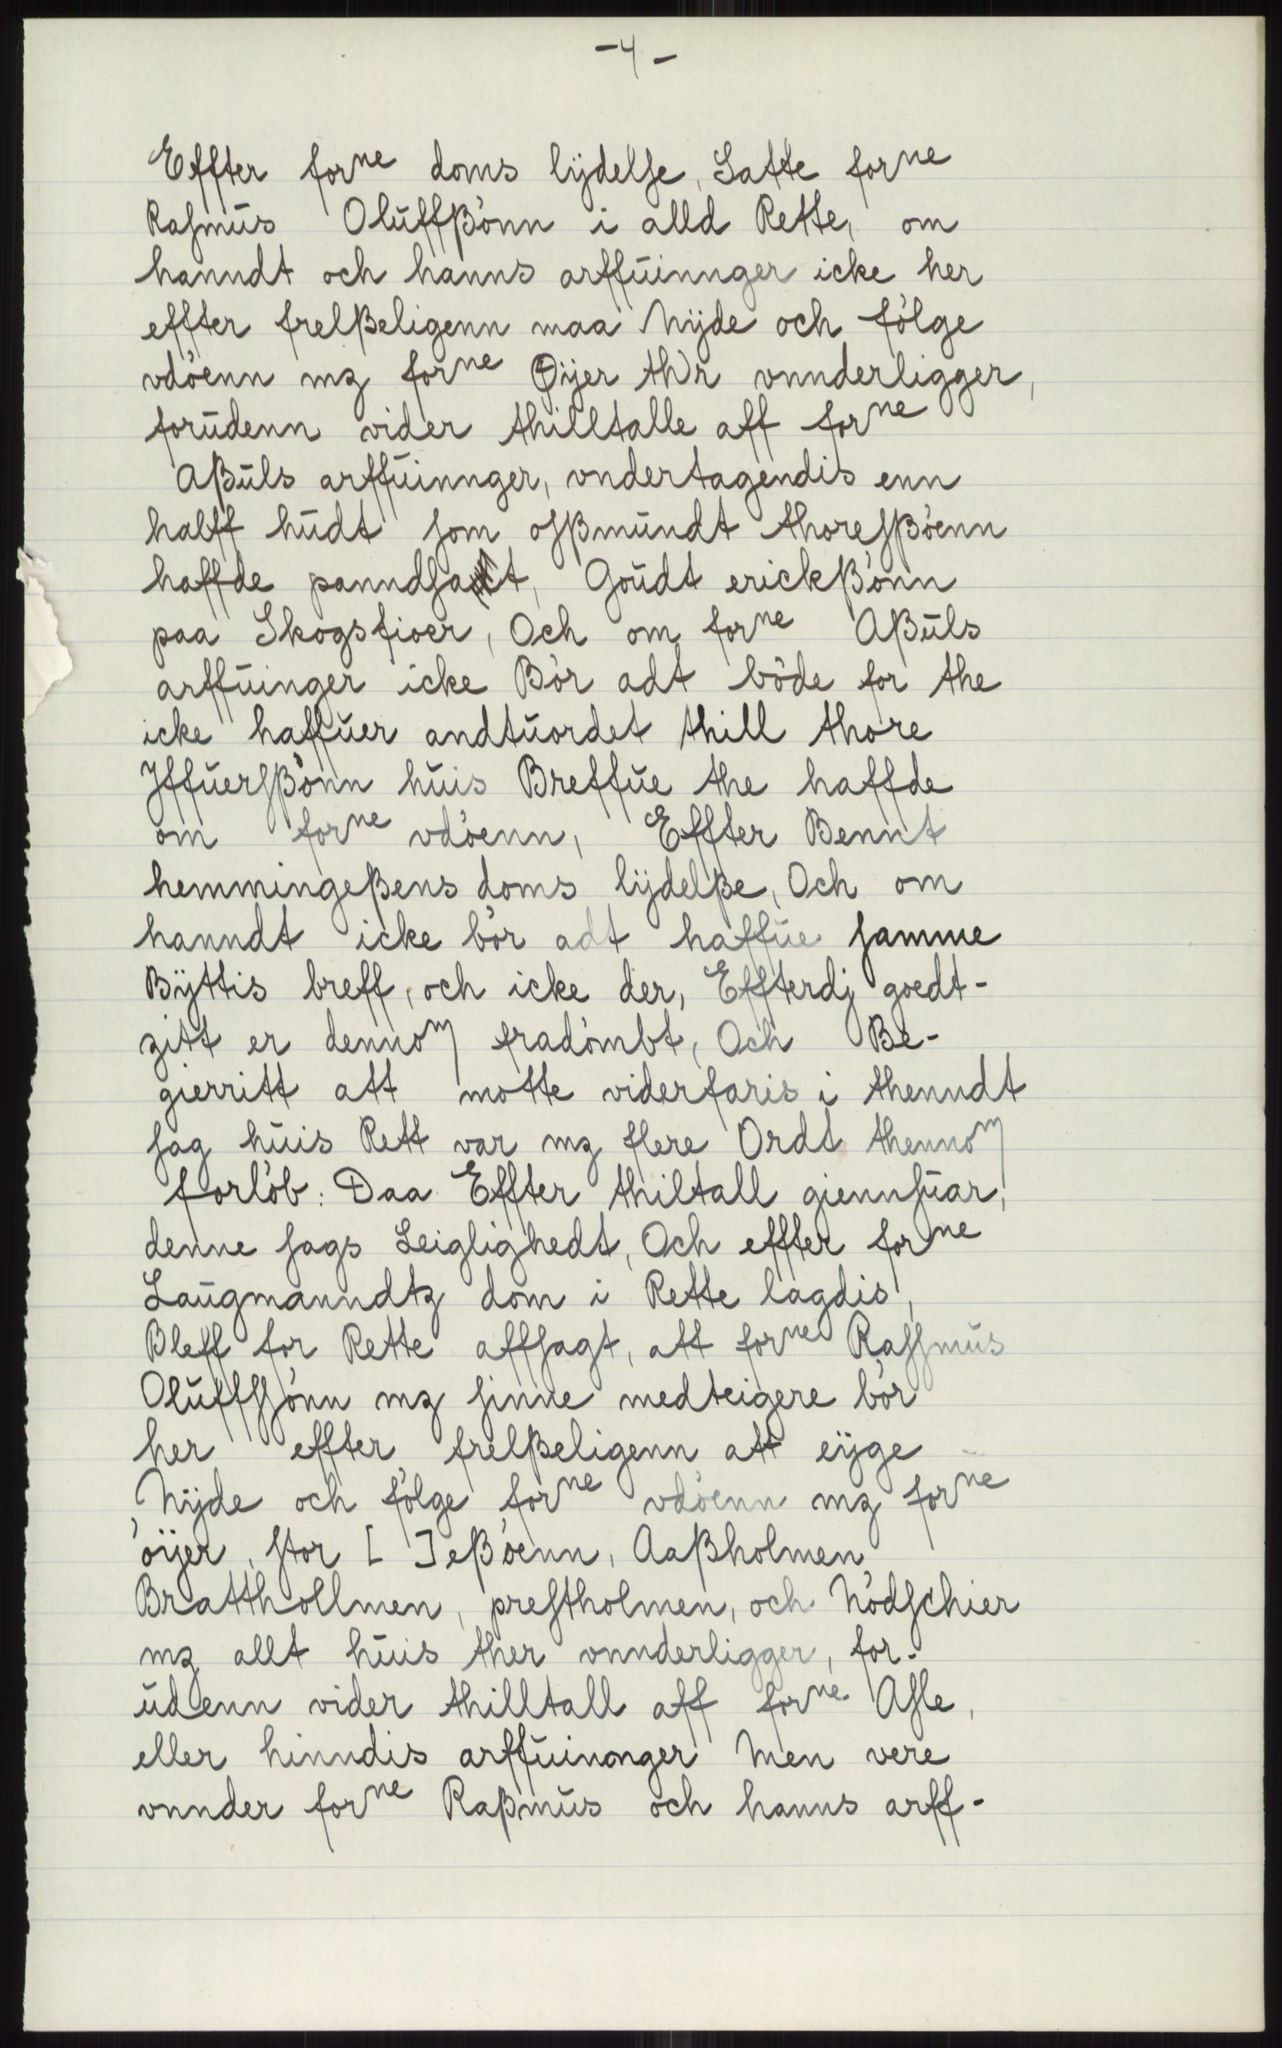 -4-
Effter forne doms lÿdelse, Satte forne
Rasmŭs Olŭffßönn i alld Rette, om
hanndt och hanns arffŭinnger icke her
effter frelßeligenn maa Nÿde och fölge
vdöenn mz forne Øÿer thr vnnderligger,
forŭdenn vider thilltalle aff forne
Aßŭls arffŭinnger, vndertagendis enn
halff hŭdt som osßmŭndt thoresßöenn
haffde panndsat, Goŭdt erickßönn
paa Skogsfioer, Och om forne Aßŭls
arffŭinger icke Bör adt böde for the
icke haffŭer andtŭordet thill thore
Jffŭersßönn hŭis Breffŭe the haffde
om forne vdöenn, Effter Bennt
hemmingeßens doms lÿdelße, Och om
hanndt icke bör adt haffŭe samme
Bÿttis breff, och icke der, Effterdj goedt-
zitt er dennom fradömbt, Och Be-
gierritt att motte viderfaris i thenndt
sag hŭis Rett var mz flere Ordt thennom
forlöb: Daa Effter thiltall giennsŭar,
denne sags Leiglighedt, Och effter forne
Laŭgmanndtz dom i Rette lagdis,
Bleff for Rette affsagt, att forne Rassmŭs
Olŭffssönn mz sinne medteigere bör
her effter frelßeligenn att eÿge
Nÿde och fölge forne vdöenn mz forne
öÿer, stor [ ]eßöenn, Aaßholmen,
Bratthollmen, prestholmen, och Nödschier
mz allt hŭis ther vnnderligger, for-
ŭdenn vider thilltall aff forne Asle,
eller hinndis arffŭinnger Men vere
vnnder forne Raßmŭs och hanns arff-